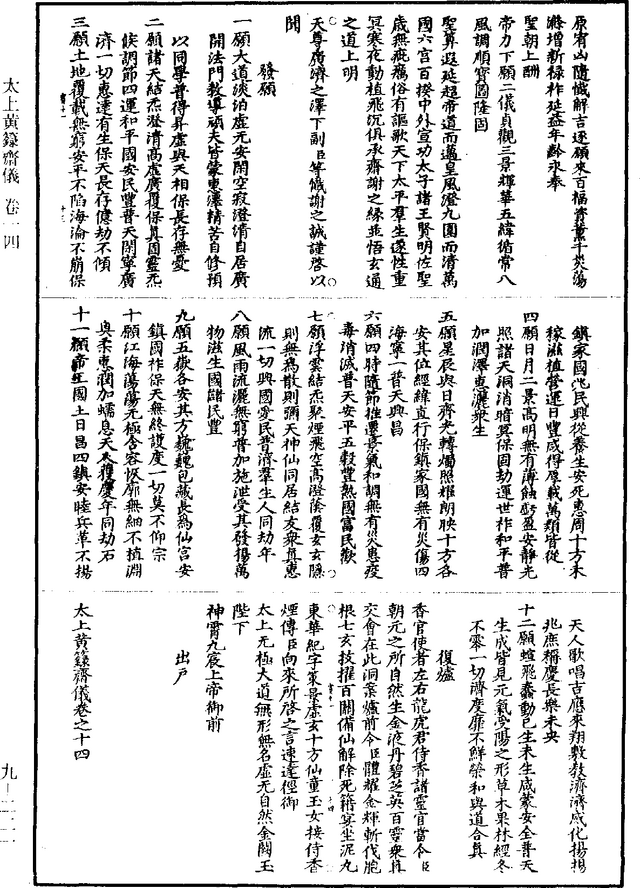 太上黃籙齋儀 卷一四
九—二二二
原宥山隨懺解吉逐願來百福
滌增新祿祚延益年齡永奉
聖朝上酬
帝力下願二儀貞觀三景輝華五緯循常八
風調順寶圖隆固
聖筭遐延超帝道而邁皇風澄九圍而清萬
國六宮百揆中外宣功太子諸王賢明佐聖
歲無疵癘俗有謳歌天下太平羣生遂性重
冥寒夜動植飛沉俱承齋謝之緣並悟玄通
之道上明
天尊廣濟之澤下副臣等懺謝之誠謹啓以
聞
發願
一願大道淡泊虛无安閑空寂澄清自居廣
開法門教導頑夫皆蒙惠澤精苦自修預
以同學普得昇虛與天相保長存無憂
二願諸天結炁澄清高虛廣覆保真固靈炁
候調節四運和平國安民豐普天閑寧廣
濟一切惠逮有生保天長存億劫不傾
三願土地覆載無窮安平不陷海淪不崩保
鎮家國兆民興從養生安死惠周十方禾
稼滋植營運日豐咸得厚載萬類皆從
四願日月二景高明無有薄蝕虧盈安靜光
照諸天洞消暗冥保固劫運世祚和平普
加潤澤惠灑衆生
五願星辰與日齊光轉燭照耀朗映十方各
安其位經緯直行保鎮家國無有災傷四
海寧一普天興昌
六願四時隨節推遷喪氣和調無有災患疫
毒消滅普天安平五穀豐熟國富民歡
七願浮雲結炁聚煙飛空高澄蔭覆玄玄隱
則無爲散則彌天神仙同居結友衆真惠
流一切興國愛民普濟羣生人同劫年
八願風雨流灑無窮普加施泄受其發揚萬
物滋生國儲民豐
九願五嶽各安其方巍巍包藏長爲仙宮安
鎮國祚保天無終護度一切莫不仰宗
十願江海蕩蕩元極含容恢廓無細不植淵
奧柔惠潤加蠕息天人獲慶年同劫石
十一願帝王國土日昌四鎮安睦兵革不揚
天人歌唱吉應來翔敷教濟濟咸化揚揚
兆庶稱慶長樂未央
十二願蜎飛蠢動已生未生咸蒙安全普天
生成皆見元氣受陽之形草木果林經冬
不零一切濟度靡不鮮榮和與道合真
復爐
香官使者左右龍虎君侍香諸靈官當令臣
朝元之所自然生金液丹碧芝英百靈衆真
交會在此洞案爐前令臣體耀金輝斬伐胞
根七玄技擢百關備仙解除死籍宴坐泥丸
東華紀字策景虛玄十方仙童玉女接侍香
煙傳臣向來所啓之言速達徑御
太上无極大道無形無名虛无自然金闕玉
陛下
神霄九宸上帝御前
出戶
太上黃籙齋儀卷之十四